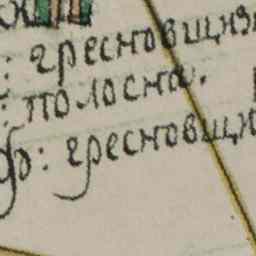 : гресновщиз
: полосна.
ф: гресновщи